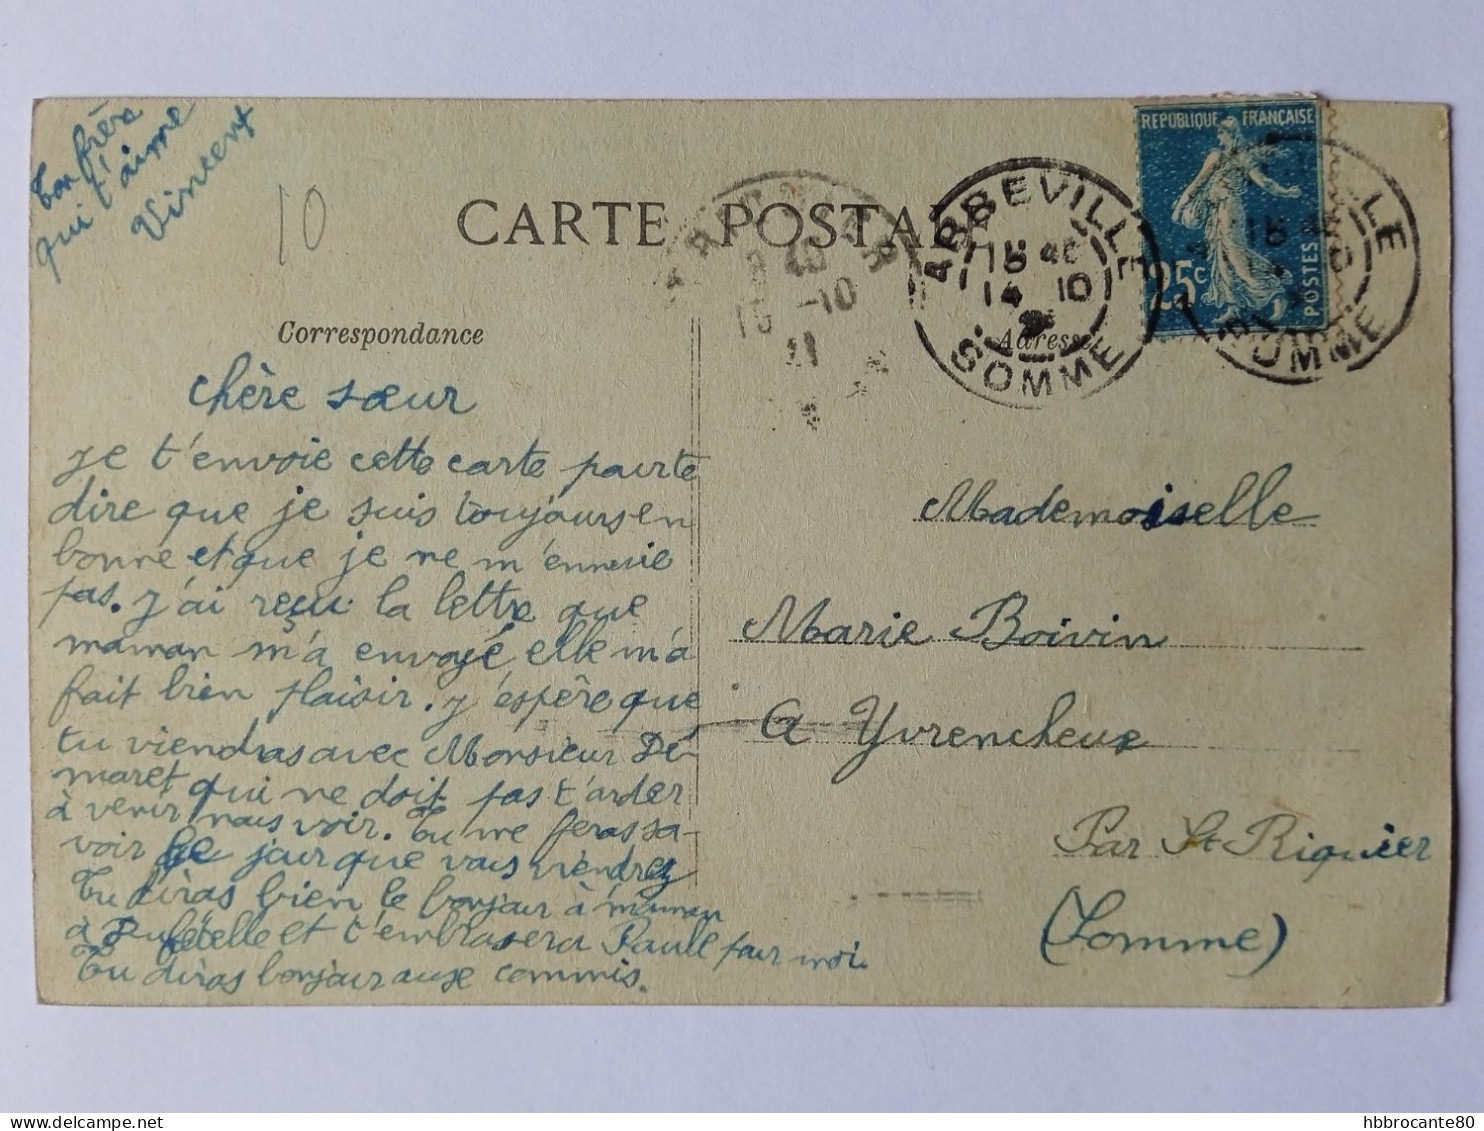 Ton frère
qui t'aime
Vincent
10
CARTE POSTALE
ABBEVILLE
15 40
14 10
SOMME
REPUBLIQUE FRANÇAISE
25c
POSTES
LE
SOMME
40
-10
Correspondance
Adresse
Chère sœur
Je t'envoie cette carte pour te
dire que je suis toujours en
bonne et que je ne m'ennuie
pas. J'ai reçu la lettre que
maman m'a envoyé elle m'a
fait bien plaisir. J'espère que
tu viendras avec Monsieur Dé-
maret qui ne doit pas t'arder
à venir nous voir. Tu me feras sa-
voir le jour que vous viendrez
Tu diras bien le bonjour à maman
à et t'embrasera Paul pour moi.
Tu diras bonjour aux commis.
Mademoiselle
Marie Boivin
A Yvrencheux
Par St Riquier
(Somme)
hbbrocante80